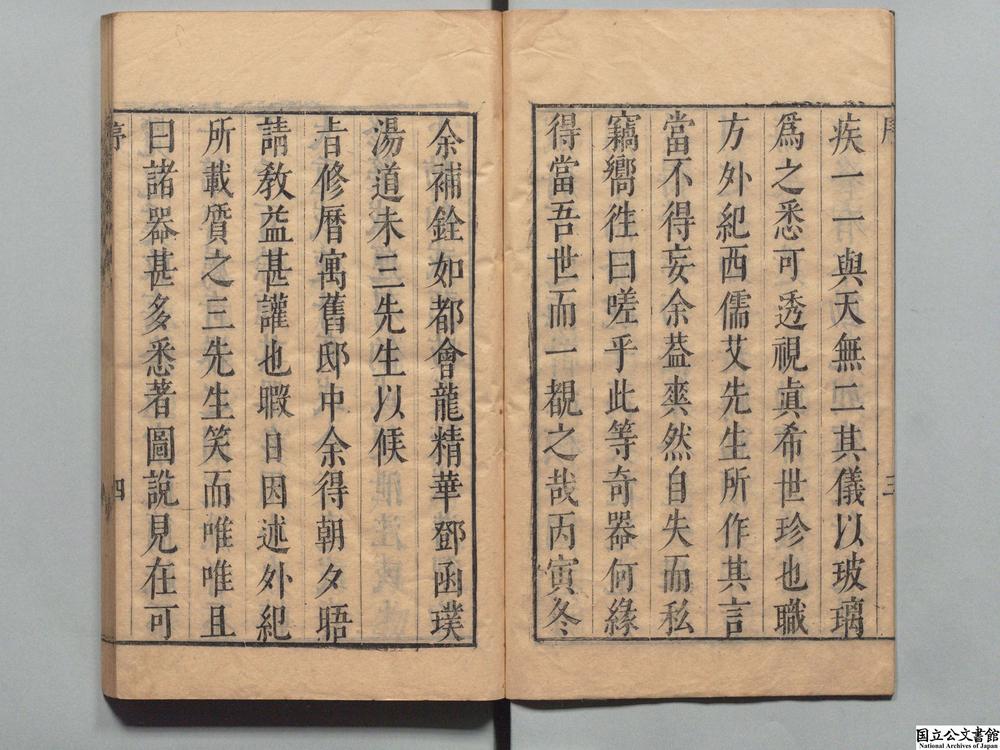 疾一一與天無二其儀以玻璃
爲之悉可透視眞希世珍也職
方外紀西儒艾先生所作其言
當不得妄余葢爽然自失而私
竊嚮徃曰嗟乎此等奇器何緣
得當吾世而一覩之哉丙寅冬
三
余補銓如都會龍精華鄧函璞
湯道未三先生以候
旨修曆寓舊邸中余得朝夕晤
請敎益甚讙也暇日因述外紀
所載質之三先生笑而唯唯且
曰諸器甚多悉著圖說見在可
序
四
国立公文書館
National Archives of Japan